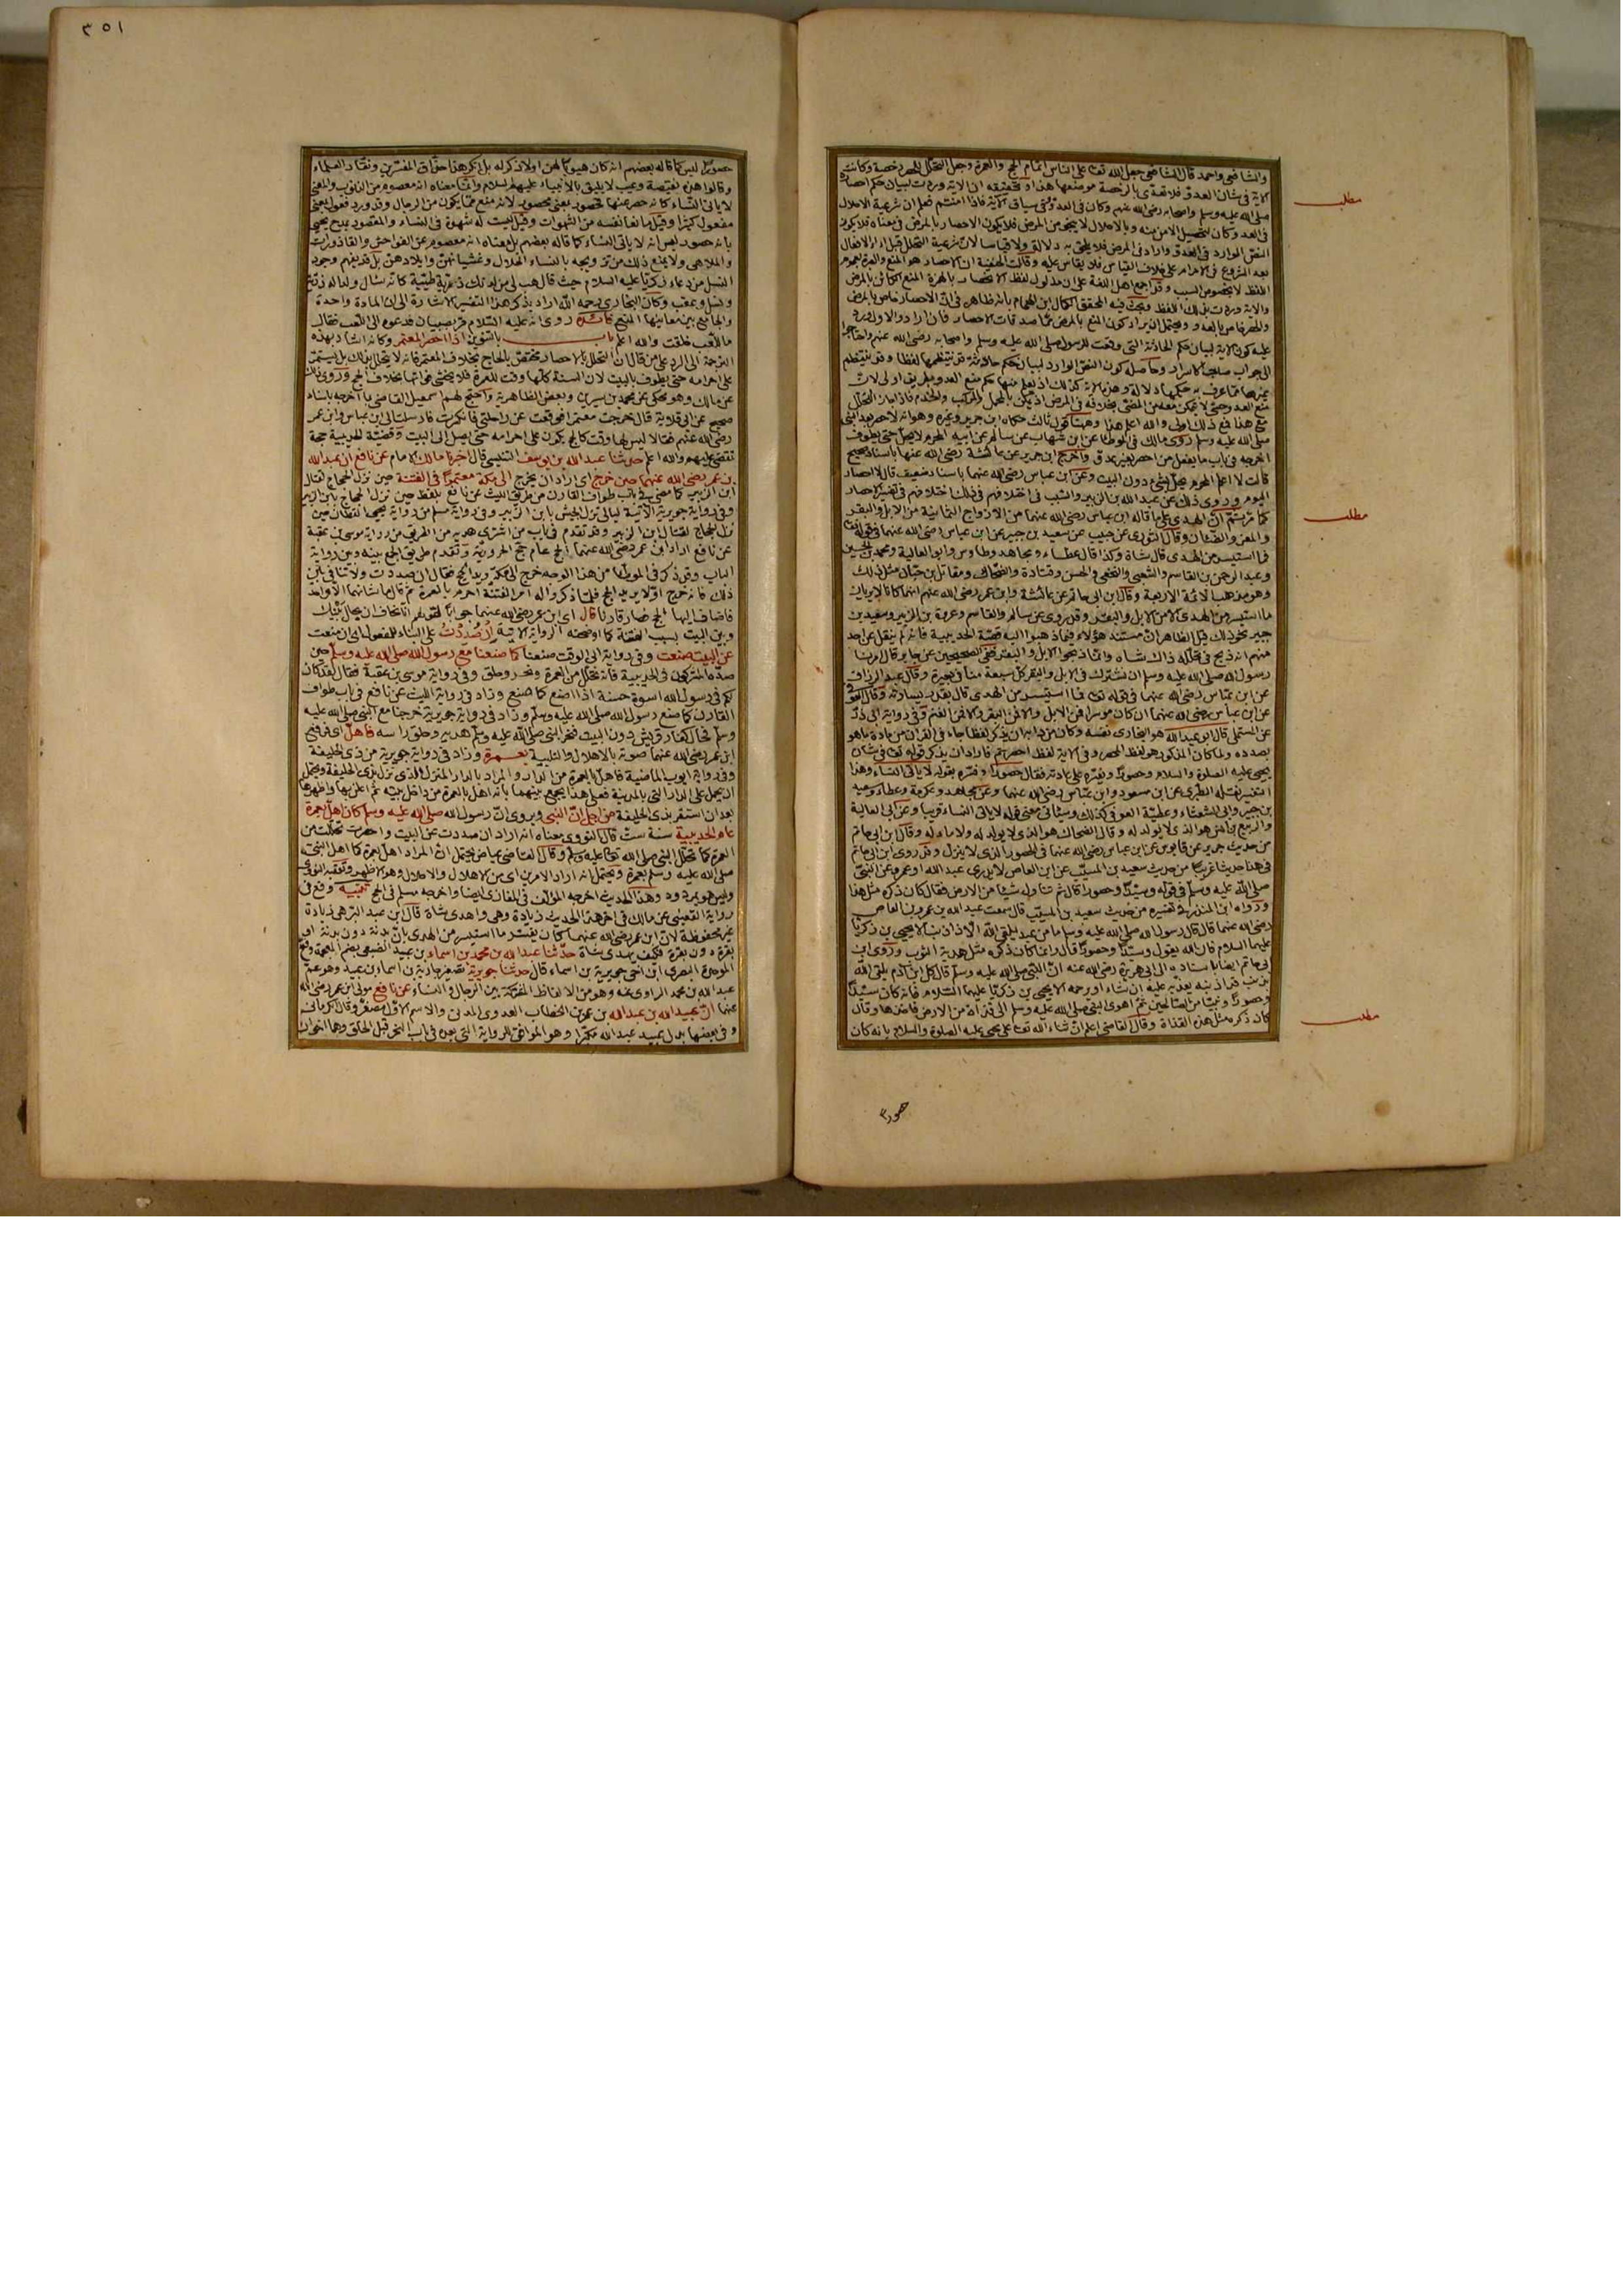 والشافعي واحمد قال الشافعي جعل الله تعالى على الناس اتمام الحج والعمرة وجعل التحلل للمحصر رخصة وكانت
الآية في شأن العدو فلا تعدى بالرخصة موضعها هذا وتحقيقه ان الآية وردت لبيان حكم احصار
صلى الله عليه وسلم واصحابه رضي الله عنهم وكان في العدو وفي سياق الآية فاذا امنتم فعلم ان شرعية الاحلال
في العدو كان لتحصيل الامن منه وبالاحلال لا ينجو من المرض فلا يكون الاحصار بالمرض في معناه فلا يكون
النص الوارد في العدو واردا في المرض فلا يلحق به دلالة ولا قياسا لان شرعية التحلل قبل اداء الافعال
بعد الشروع في الاحرام على خلاف القياس فلا يقاس عليه وقالت الحنفية ان الاحصار هو المنع والعبرة لعموم
اللفظ لا بخصوص السبب وقد اجمع اهل اللغة على ان مدلول لفظ الاحصار بالهمزة المنع الكائن بالمرض
والآية وردت بذلك اللفظ وبحث فيه المحقق الكمال ابن الهمام بانه ظاهر في ان الاحصار خاص بالمرض
والحصر خاص بالعدو ويحتمل ان يراد كون المنع بالمرض من ما صدقات الاحصار فان اراد الاول ورد
عليه كون الآية لبيان حكم الحادثة التي وقعت للرسول صلى الله عليه وسلم واصحابه رضي الله عنهم واحتاجوا
الى جواب صاحب الاسرار وحاصله كون النص الوارد لبيان حكم حادثة قد ينتظمها لفظا وقد ينتظم
غيرها مما يعرف به حكمها دلالة وهذه الآية كذلك اذ يعلم منها حكم منع العدو بطريق اولى لان
منع العدو حسي لا يتمكن معه من المضي بخلافه في المرض اذ يمكن بالمحمل والمركب والخدم فاذا جاز التحلل
مع هذا فمع ذلك اولى والله اعلم هذا وههنا قول ثالث حكاه ابن جرير وغيره وهو انه لا حصر بعد النبي
صلى الله عليه وسلم روى مالك في الموطأ عن ابن شهاب عن سالم عن ابيه المحرم لا يحل حتى يطوف
اخرجه في باب ما يفعل من احصر بغير عدو واخرج ابن جرير عن عائشة رضي الله عنها باسناد صحيح
قالت لا اعلم المحرم يحل بشيء دون البيت وعن ابن عباس رضي الله عنهما باسناد ضعيف قال لا احصار
اليوم وروى ذلك عن عبد الله بن الزبير والسبب في اختلافهم في ذلك اختلافهم في تفسير الاحصار
كما ثم ان الهدي على ما قاله ابن عباس رضي الله عنهما من الازواج الثمانية من الابل والبقر
والمعز والضأن وقال الثوري عن حبيب عن سعيد بن جبير عن ابن عباس رضي الله عنهما في قوله تعالى
فما استيسر من الهدي قال شاة وكذا قال عطاء ومجاهد وطاوس وابو العالية ومحمد بن الحسين
وعبد الرحمن بن القاسم والشعبي والنخعي والحسن وقتادة والضحاك ومقاتل بن حيان مثل ذلك
وهو مذهب الائمة الاربعة وقال ابن ابي حاتم عن عائشة وابن عمر رضي الله عنهم انهما كانا لا يريان
ما استيسر من الهدي الا من الابل والبقر وقد روي عن سالم والقاسم وعروة بن الزبير وسعيد بن
جبير نحو ذلك قيل الظاهر ان مستند هؤلاء فيما ذهبوا اليه قصة الحديبية فانه لم ينقل عن احد
منهم انه ذبح في تحلله ذاك شاة وانما ذبحوا الابل والبقر ففي الصحيحين عن جابر قال امرنا
رسول الله صلى الله عليه وسلم ان نشترك في الابل والبقر كل سبعة منا في بقرة وقال عبد الرزاق
عن ابن عباس رضي الله عنهما في قوله تعالى فما استيسر من الهدي قال بقدر يسارته وقال العوفي
عن ابن عباس رضي الله عنهما ان كان موسرا فمن الابل والا فمن البقر والا فمن الغنم وفي رواية ابي ذر
عن المستملي قال ابو عبد الله هو البخاري نفسه وكان من دابه ان يذكر لفظا جاء في القرآن من مادة ما هو
بصدده ولما كان المذكور هو لفظ المحصر وفي الآية لفظ احصرتم فاراد ان يذكر قوله تعالى في شان
يحيى عليه الصلوة والسلام وحصورا ويفسره على عادته فقال حصورا وفسره بقوله لا ياتي النساء وهذا
التفسير نقله الطبري عن ابن مسعود وابن عباس رضي الله عنهما وعن مجاهد وعكرمة وعطاء وسعيد
بن جبير وابي الشعثاء وعطية العوفي كذلك وسيأتي معنى قوله لا ياتي النساء قريبا وعن ابي العالية
والربيع بن انس هو الذي لا يولد له وقال الضحاك هو الذي لا يولد له ولا ماء له وقال ابن ابي حاتم
من حديث جرير عن قابوس عن ابن عباس رضي الله عنهما في الحصور الذي لا ينزل وقد روى ابن ابي حاتم
في هذا حديثا غريبا من حديث سعيد بن المسيب عن ابن العاص لا يدرى عبد الله او عمرو عن النبي
صلى الله عليه وسلم في قوله وسيدا وحصورا قال ثم تناول شيئا من الارض فقال كان ذكره مثل هذا
ورواه ابن المنذر في تفسيره من حديث سعيد بن المسيب قال سمعت عبد الله بن عمرو بن العاص
رضي الله عنهما قال قال رسول الله صلى الله عليه وسلم ما من عبد يلقى الله الا ذا ذنب الا يحيى بن زكريا
عليهما السلام فان الله يقول وسيدا وحصورا قال وانما كان ذكره مثل هدبة الثوب وروى ابن
ابي حاتم ايضا باسناده الى ابي هريرة رضي الله عنه ان النبي صلى الله عليه وسلم قال كل ابن آدم يلقى الله
بذنب قد اذنبه يعذبه عليه ان شاء او يرحمه الا يحيى بن زكريا عليهما السلام فانه كان سيدا
وحصورا ونبيا من الصالحين ثم اهوى النبي صلى الله عليه وسلم الى قذاة من الارض فاخذها وقال
كان ذكره مثل هذه القذاة وقال القاضي اعلم ان ثناء الله تعالى على يحيى عليه الصلوة والسلام بانه كان
مطلب
مطلب
مطلب
حصورا
٣٥١
حصورا ليس كما قاله بعضهم انه كان هيوبا او لا ذكر له بل انكر هذا حذاق المفسرين ونقاد العلماء
وقالوا هذه نقيصة وعيب لا يليق بالانبياء عليهم السلام وانما معناه انه معصوم من الذنوب والمعنى
لا ياتي النساء كانه حصر عنها فحصور بمعنى محصور لانه منع مما يكون من الرجال وقد ورد فعول بمعنى
مفعول كثيرا وقيل مانعا نفسه من الشهوات وقيل ليست له شهوة في النساء والمقصود مدح يحيى
بانه حصور ليس انه لا ياتي النساء كما قاله بعضهم بل معناه انه معصوم عن الفواحش والقاذورات
والملاهي ولا يمنع ذلك من تزويجه بالنساء الحلال وغشيانهن وايلادهن بل قد يفهم وجود
النسل من دعاء زكريا عليه السلام حيث قال هب لي من لدنك ذرية طيبة كانه سال ولدا له ذرية
ونسل وعقب وكان البخاري رحمه الله اراد بذكر هذا التفسير الاشارة الى ان المادة واحدة
والجامع بين معانيها المنع فائدة روى انه عليه السلام مر بصبيان فدعوه الى اللعب فقال
ما للعب خلقت والله اعلم باب بالتنوين اذا احصر المعتمر وكانه اشار بهذه
الترجمة الى الرد على من قال ان التحلل بالاحصار مختص بالحاج بخلاف المعتمر فانه لا يتحلل بذلك بل يستمر
على احرامه حتى يطوف بالبيت لان السنة كلها وقت للعمرة فلا يخشى فواتها بخلاف الحج وروى ذلك
عن مالك وهو محكي عن محمد بن سيرين وبعض الظاهرية واحتج لهم اسمعيل القاضي بما اخرجه باسناد
صحيح عن ابي قلابة قال خرجت معتمرا فوقعت عن راحلتي فانكسرت فارسلت الى ابن عباس وابن عمر
رضي الله عنهم فقالا ليس لها وقت كالحج يكون على احرامه حتى يصل الى البيت وقضية الحديبية حجة
تقضي عليهم والله اعلم حدثنا عبد الله بن يوسف التنيسي قال اخبرنا مالك الامام عن نافع ان عبد الله
بن عمر رضي الله عنهما حين خرج اي اراد ان يخرج الى مكة معتمرا في الفتنة حين نزل الحجاج لقتال
ابن الزبير كما مضى في باب طواف القارن من طريق الليث عن نافع بلفظ حين نزل الحجاج بابن الزبير
وفي رواية جويرية الآتية ليالي نزل الجيش بابن الزبير وفي رواية مسلم من رواية يحيى القطان حين
نزل الحجاج لقتال ابن الزبير وقد تقدم في باب من اشترى هديه من الطريق من رواية موسى بن عقبة
عن نافع اراد ابن عمر رضي الله عنهما الحج عام حج الحرورية وتقدم طريق الجمع بينه وبين رواية
الباب وقد ذكر في الموطأ من هذا الوجه خرج الى مكة يريد الحج فقال ان صددت ولا تنافي بين
ذلك فانه خرج اولا يريد الحج فلما ذكروا له امر الفتنة احرم بالعمرة ثم قال ما شانهما الا واحد
فاضاف اليها الحج فصار قارنا قال اي ابن عمر رضي الله عنهما جوابا لقولهم انا نخاف ان يحال بينك
وبين البيت بسبب الفتنة كما اوضحته الرواية الآتية ان صددت على البناء للمفعول اي ان منعت
عن البيت صنعت وفي رواية ابي الوقت صنعنا كما صنعنا مع رسول الله صلى الله عليه وسلم حين
صده المشركون في الحديبية فانه تحلل من العمرة ونحر وحلق وفي رواية موسى بن عقبة فقال لقد كان
لكم في رسول الله اسوة حسنة اذا اصنع كما صنع وزاد في رواية الليث عن نافع في باب طواف
القارن كما صنع رسول الله صلى الله عليه وسلم وزاد في رواية جويرية خرجنا مع النبي صلى الله عليه
وسلم فحال كفار قريش دون البيت فنحر النبي صلى الله عليه وسلم هديه وحلق راسه فاهل اي فرفع
ابن عمر رضي الله عنهما صوته بالاهلال والتلبية بعمرة وزاد في رواية جويرية من ذي الحليفة
وفي رواية ايوب الماضية فاهل بالعمرة من الدار والمراد بالدار المنزل الذي نزل بذي الحليفة ويحتمل
ان يحمل على الدار التي بالمدينة فعلى هذا يجمع بينهما بانه اهل بالعمرة من داخل بيته ثم اعلن بها واظهرها
بعد ان استقر بذي الحليفة من اجل ان النبي ويروى ان رسول الله صلى الله عليه وسلم كان اهل بعمرة
عام الحديبية سنة ست قال النووي معناه انه اراد ان صددت عن البيت واحصرت تحللت من
العمرة كما تحلل النبي صلى الله تعالى عليه وسلم وقال القاضي عياض يحتمل ان المراد اهل بعمرة كما اهل النبي
صلى الله عليه وسلم بعمرة ويحتمل انه اراد الامرين اي من الاهلال والاحلال وهو الاظهر وتعقبه النووي
وليس هو بمردود وهذا الحديث اخرجه المؤلف في المغازي ايضا واخرجه مسلم في الحج تنبيه وقع في
رواية القعنبي عن مالك في اخر هذا الحديث زيادة وهي واهدى شاة قال ابن عبد البر هي زيادة
غير محفوظة لان ابن عمر رضي الله عنهما كان يفسر ما استيسر من الهدي بان بدنة دون بدنة او
بقرة دون بقرة فكيف يهدي شاة حدثنا عبد الله بن محمد بن اسماء بن عبيد الضبعي بضم المعجمة وفتح
الموحدة البصري ابن اخي جويرية بن اسماء قال حدثنا جويرية تصغير جارية بن اسماء بن عبيد وهو عم
عبد الله بن محمد الراوي عنه وهو من الالفاظ المشتركة بين الرجال والنساء عن نافع مولى ابن عمر رضي الله
عنهما ان عبيد الله بن عبد الله بن عمر بن الخطاب العدوي المدني والاسم الاول مصغر وقال الكرماني
وفي بعضها بدل عبيد عبد الله مكبرا وهو الموافق للرواية التي بعده في باب النحر قبل الحلق وهما اخوان